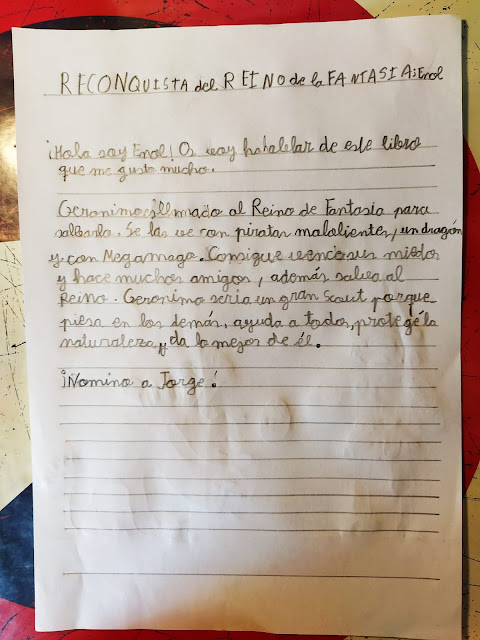 RECONQUISTA del REINO de la FANTASIA: Enol
¡Hola soy Enol! Os voy hablar de este libro
que me gusto mucho.
Geronimo es llamado al Reino de Fantasia para
salbarlo. Se las ve con piratas malolientes, un dragón
y con Megamago. Consigue vencer sus miedos
y hace muchos amigos, además salva al
Reino. Geronimo seria un gran Scaut porque
piesa en los demás, ayuda a todos, protege la
naturaleza, y da lo mejor de él.
¡Nomino a Jorge!